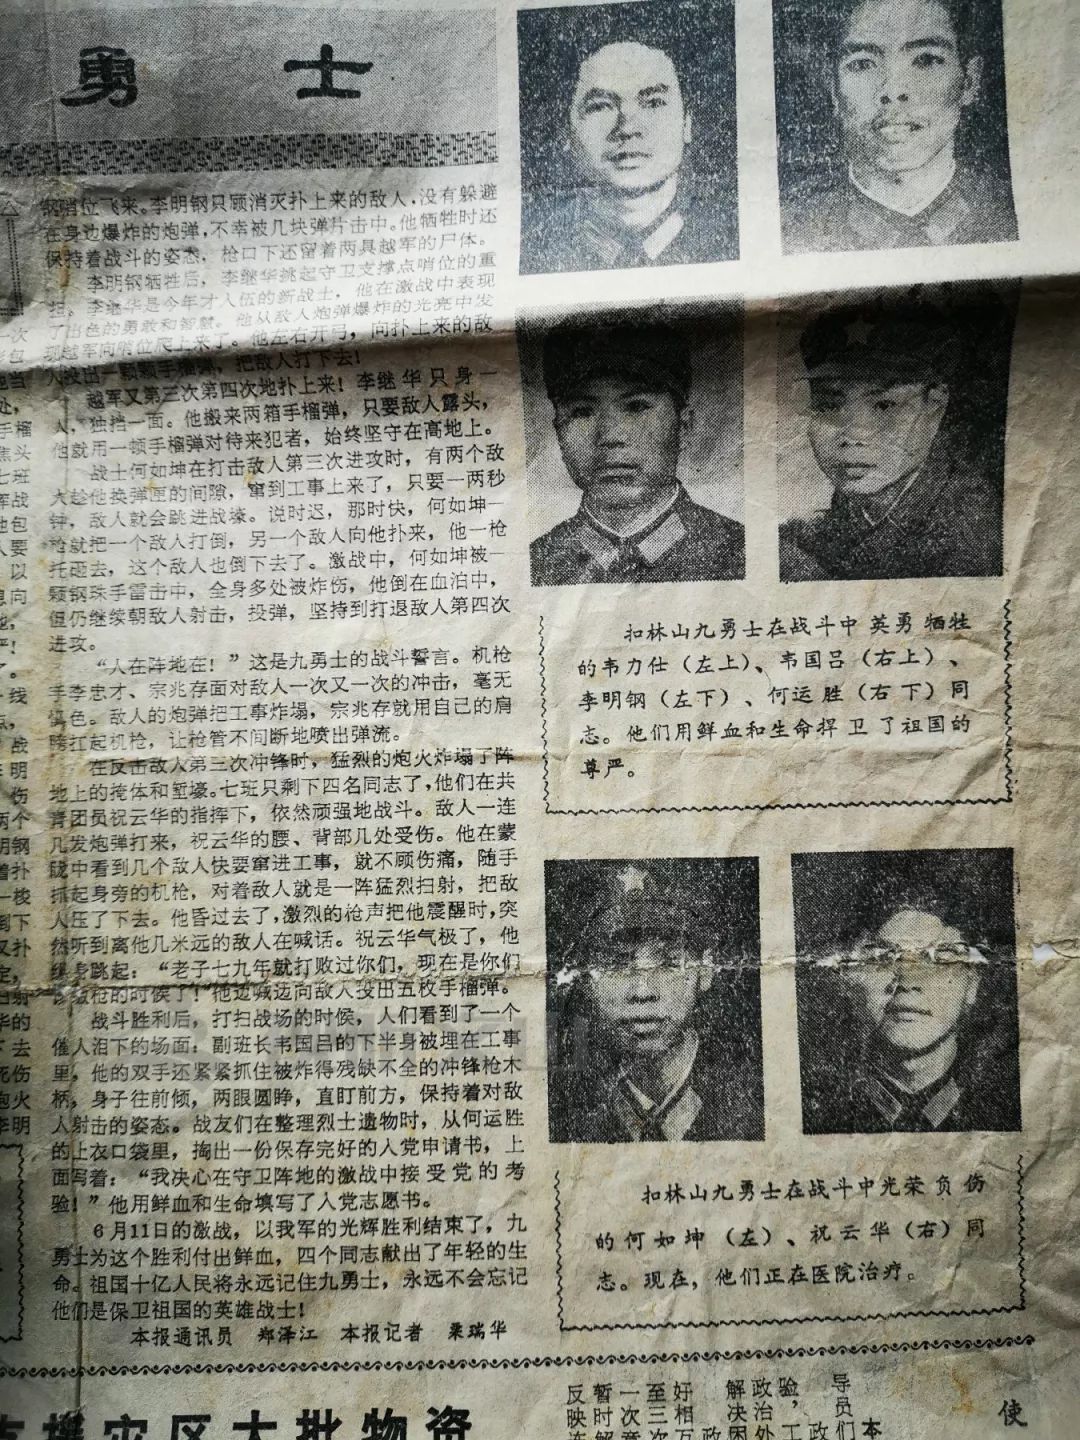 勇士
钢哨位飞来。李明钢只顾消灭扑上来的敌人，没有躲避
在身边爆炸的炮弹，不幸被几块弹片击中。他牺牲时还
保持着战斗的姿态，枪口下还留着两具越军的尸体。
李明钢牺牲后，李继华挑起守卫支撑点哨位的重
担。李继华是今年才入伍的新战士，他在激战中表现
了出色的勇敢和智慧。他从敌人炮弹爆炸的光亮中发
现越军向哨位爬上来了。他左右开弓，向扑上来的敌
人投出一颗颗手榴弹，把敌人打下去！
越军又第三次第四次地扑上来！李继华只身一
人，独挡一面。他搬来两箱手榴弹，只要敌人露头，
他就用一顿手榴弹对待来犯者，始终坚守在高地上。
战士何如坤在打击敌人第三次进攻时，有两个敌
人趁他换弹匣的间隙，窜到工事上来了，只要一两秒
钟，敌人就会跳进战壕。说时迟，那时快，何如坤一
枪就把一个敌人打倒，另一个敌人向他扑来，他一枪
托砸去，这个敌人也倒下去了。激战中，何如坤被一
颗钢珠手雷击中，全身多处被炸伤，他倒在血泊中，
但仍继续朝敌人射击，投弹，坚持到打退敌人第四次
进攻。
“人在阵地在！”这是九勇士的战斗誓言。机枪
手李忠才、宗兆存面对敌人一次又一次的冲击，毫无
惧色。敌人的炮弹把工事炸塌，宗兆存就用自己的肩
膀扛起机枪，让枪管不间断地喷出弹流。
在反击敌人第三次冲锋时，猛烈的炮火炸塌了阵
地上的掩体和堑壕。七班只剩下四名同志了，他们在共
青团员祝云华的指挥下，依然顽强地战斗。敌人一连
几发炮弹打来，祝云华的腰、背部几处受伤。他在蒙
眬中看到几个敌人快要窜进工事，就不顾伤痛，随手
抓起身旁的机枪，对着敌人就是一阵猛烈扫射，把敌
人压了下去。他昏过去了，激烈的枪声把他震醒时，突
然听到离他几米远的敌人在喊话。祝云华气极了，他
纵身跳起：“老子七九年就打败过你们，现在是你们
缴枪的时候了！”他边喊边向敌人投出五枚手榴弹。
战斗胜利后，打扫战场的时候，人们看到了一个
催人泪下的场面：副班长韦国吕的下半身被埋在工事
里，他的双手还紧紧抓住被炸得残缺不全的冲锋枪木
柄，身子往前倾，两眼圆睁，直盯前方，保持着对敌
人射击的姿态。战友们在整理烈士遗物时，从何运胜
的上衣口袋里，掏出一份保存完好的入党申请书，上
面写着：“我决心在守卫阵地的激战中接受党的考
验！”他用鲜血和生命填写了入党志愿书。
6月11日的激战，以我军的光辉胜利结束了，九
勇士为这个胜利付出鲜血，四个同志献出了年轻的生
命。祖国十亿人民将永远记住九勇士，永远不会忘记
他们是保卫祖国的英雄战士！
本报通讯员 郑泽江 本报记者 栗瑞华
扣林山九勇士在战斗中英勇牺牲
的韦力仕（左上）、韦国吕（右上）、
李明钢（左下）、何运胜（右下）同
志。他们用鲜血和生命捍卫了祖国的
尊严。
扣林山九勇士在战斗中光荣负伤
的何如坤（左）、祝云华（右）同
志。现在，他们正在医院治疗。
支援灾区大批物资